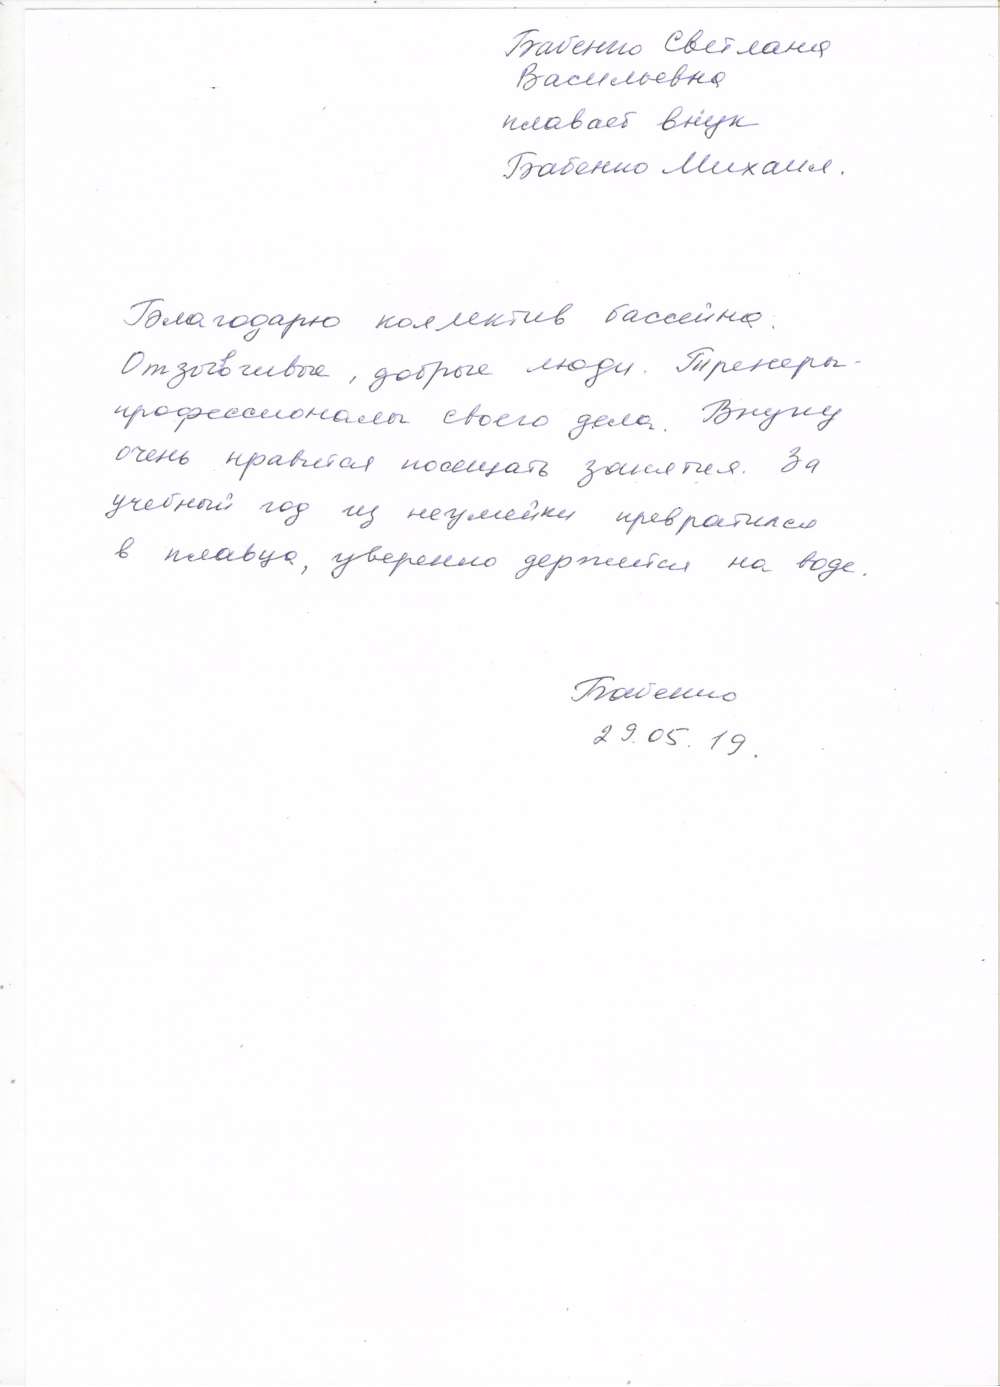 Бабенко Светлана
Васильевна
плавает внук
Бабенко Михаил.
Благодарю коллектив бассейна.
Отзывчивые, добрые люди. Тренеры-
профессионалы своего дела. Внуку
очень нравится посещать занятия. За
учебный год из неумейки превратился
в пловца, уверенно держится на воде.
Бабенко
29.05.19.